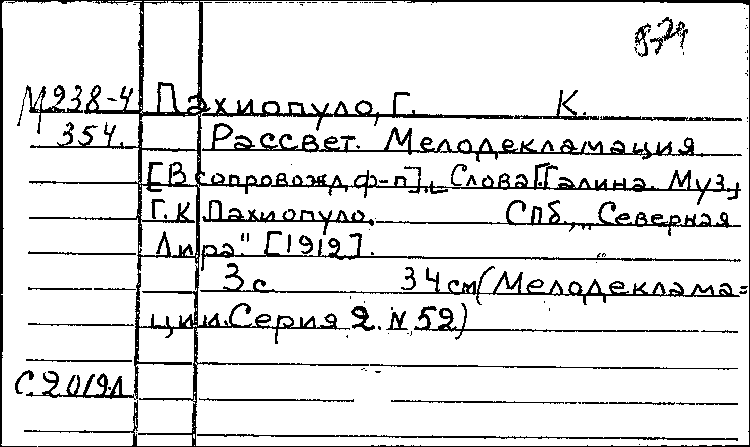 8-74
М238-4 Пахиопуло, Г. К.
354. Рассвет. Мелодекламация
[В сопровожд. ф-п]. Слова Г. Галина. Муз.
Г. К. Пахиопуло. Спб., „Северная
Лира" [1912].
3 с 34 см (Мелодеклама=
ции. Серия 2. N 52)
С. 2019Л